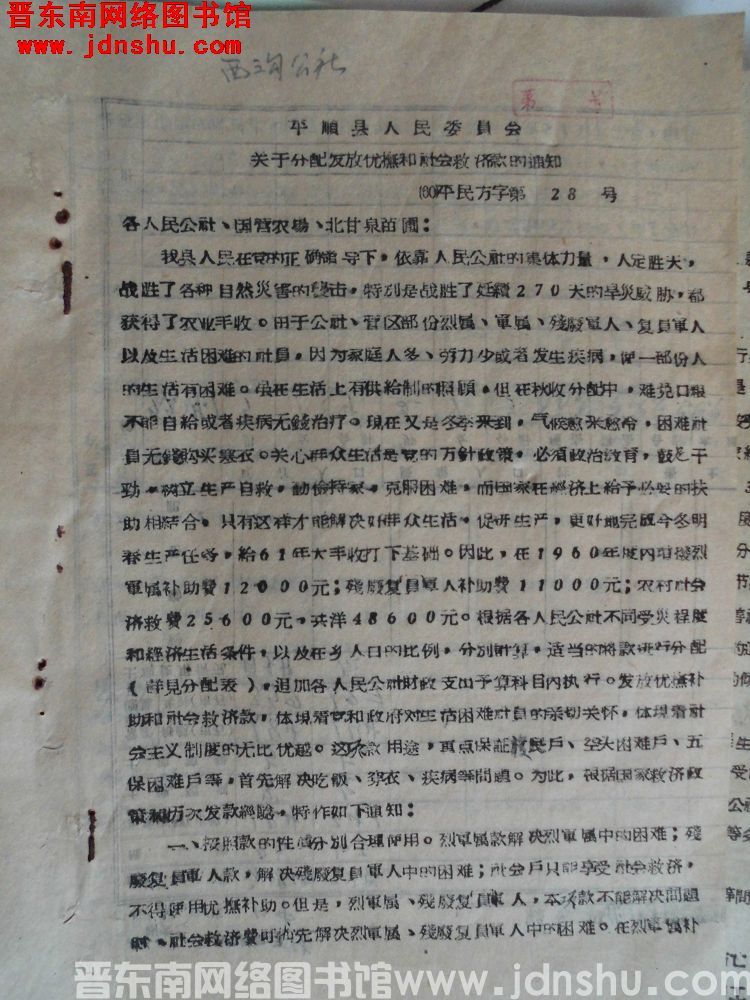 晋东南网络图书馆
www.jdnshu.com
西沟公社
第 号
平順县人民委員会
关于分配发放优撫和社会救济款的通知
(60)平民方字第 28 号
各人民公社、国营农場、北甘泉苗圃：
我县人民在党的正确領导下，依靠人民公社的集体力量，人定胜天，
战胜了各种自然災害的襲击，特別是战胜了延續270天的旱災威胁，都
获得了农业丰收。由于公社、营区部份烈属、軍属、殘廢軍人、复員軍人
以及生活困难的社員，因为家庭人多、劳力少或者发生疾病，使一部份人
的生活有困难。虽在生活上有供給制的照顧，但在秋收分配中，难免口粮
不能自給或者疾病无錢治疗。現在又是冬季来到，气候愈来愈冷，困难社
員无錢购买寒衣。关心群众生活是党的方針政策，必須政治教育，鼓足干
勁，树立生产自救，勤儉持家，克服困难，而国家在經济上給予必要的扶
助相結合，只有这样才能解决好群众生活，促进生产，更好地完成今冬明
春生产任务，給61年大丰收打下基础。因此，在1960年度內增撥烈
軍属补助費12000元；殘廢复員軍人补助費11000元；农村社会
济救費25600元，共洋48600元。根据各人民公社不同受災程度
和經济生活条件，以及在乡人口的比例，分別計算，适当的将款进行分配
（詳見分配表），追加各人民公社財政支出予算科目內执行。发放优撫补
助和社会救济款，体現着党和政府对生活困难社員的亲切关怀，体現着社
会主义制度的无比优越。这次款用途，重点保証移民戶、空头困难戶、五
保困难戶等，首先解决吃飯、穿衣、疾病等問題。为此，根据国家救济政
策和历次发款經驗，特作如下通知：
一、按照款的性质分別合理使用。烈軍属款解决烈軍属中的困难；殘
廢复員軍人款，解决殘廢复員軍人中的困难；社会戶只能享受社会救济，
不得使用优撫补助。但是，烈軍属、殘廢复員軍人，本項款不能解决問題
时，社会救济費可优先解决烈軍属、殘廢复員軍人中的困难。在烈軍属补
晋东南网络图书馆 www.jdnshu.com